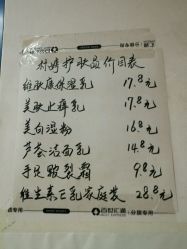 村婷护肤品价目表
维肤康保湿乳 17.8元
美肤止痒乳 17.8元
美白湿粉 16.8元
芦荟洁面乳 14.8元
手足皲裂霜 9.8元
维生素E乳家庭装 28.8元
百世汇通